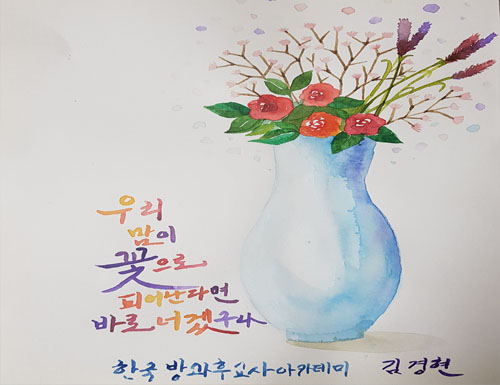 우리
맘이
꽃으로
피어난다면
바로 너겠구나
한국 방과후교사아카데미 김경현